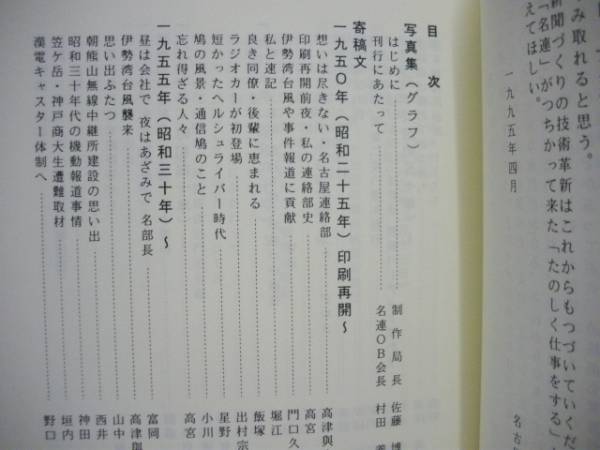 み取れると思う。
新聞づくりの技術革新はこれからもつづいていくだ
「名連」がつちかって来た「たのしく仕事をする」
えてほしい。
一九九五年四月
名古
目次
写真集（グラフ）
はじめに 制作局長 佐藤 博
刊行にあたって 名連ＯＢ会長 村田
寄稿文
一九五〇年（昭和二十五年）印刷再開～
想いは尽きない・名古屋連絡部 高津與
印刷再開前夜・私の連絡部史 高宮
伊勢湾台風や事件報道に貢献 門口久
私と速記 堀江
良き同僚・後輩に恵まれる 飯塚
ラジオカーが初登場 出村宗
短かったヘルシュライバー時代 星野
鳩の風景・通信鳩のこと 小川
忘れ得ざる人々 高宮
一九五五年（昭和三十年）～
昼は会社で 夜はあざみで 名部長 富岡
伊勢湾台風襲来 高津與
思い出ふたつ 山中
朝熊山無線中継所建設の思い出 西井
昭和三十年代の機動報道事情 神田
笠ケ岳・神戸商大生遭難取材 垣内
漢電キャスター体制へ 野口